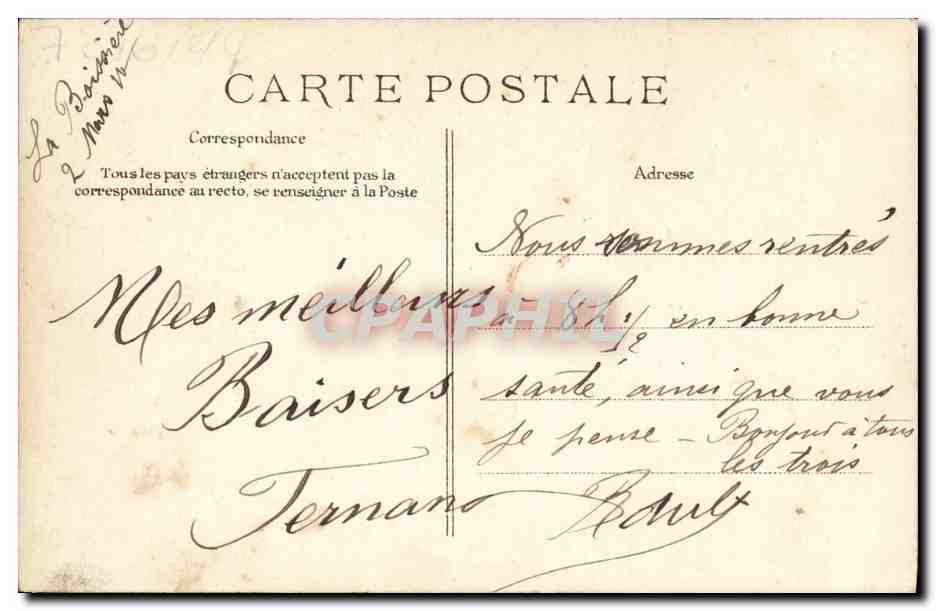 La Boissière
2 Mars 12
CARTE POSTALE
Correspondance
Tous les pays étrangers n'acceptent pas la
correspondance au recto, se renseigner à la Poste
Adresse
Mes meilleurs
Baisers
Fernand
Nous sommes rentrés
à 8h 1/2 en bonne
santé, ainsi que vous
je pense - Bonjour à tous
les trois
CPAPHIL